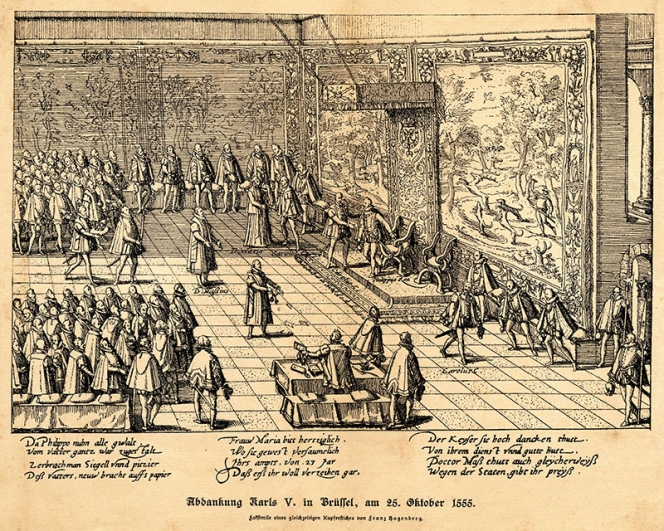 Carolus
Da Philippo nuhn alle gwalt
Vom Vatter gantz war zugestalt
Zerbrach man Sigell vnnd pitzier
Deß Vatters, neuw bracht auffs papier
Frauw Maria bitt hertziglich.
Wo sie gewest versaumelich
Ihrs ampts. von. 27 Jar
Daß ers ihr woll verzeihen gar.
Der Keyser sie hoch dancken thutt.
Von ihrem dienst vnnd gutte hutt.
Doctor Maß thutt auch gleycherweyß
Wegen der Staten, gibt ihr preyß.
Abdankung Karls V. in Brüssel, am 25. Oktober 1555.
Faksimile eines gleichzeitigen Kupferstiches von Franz Hogenberg.